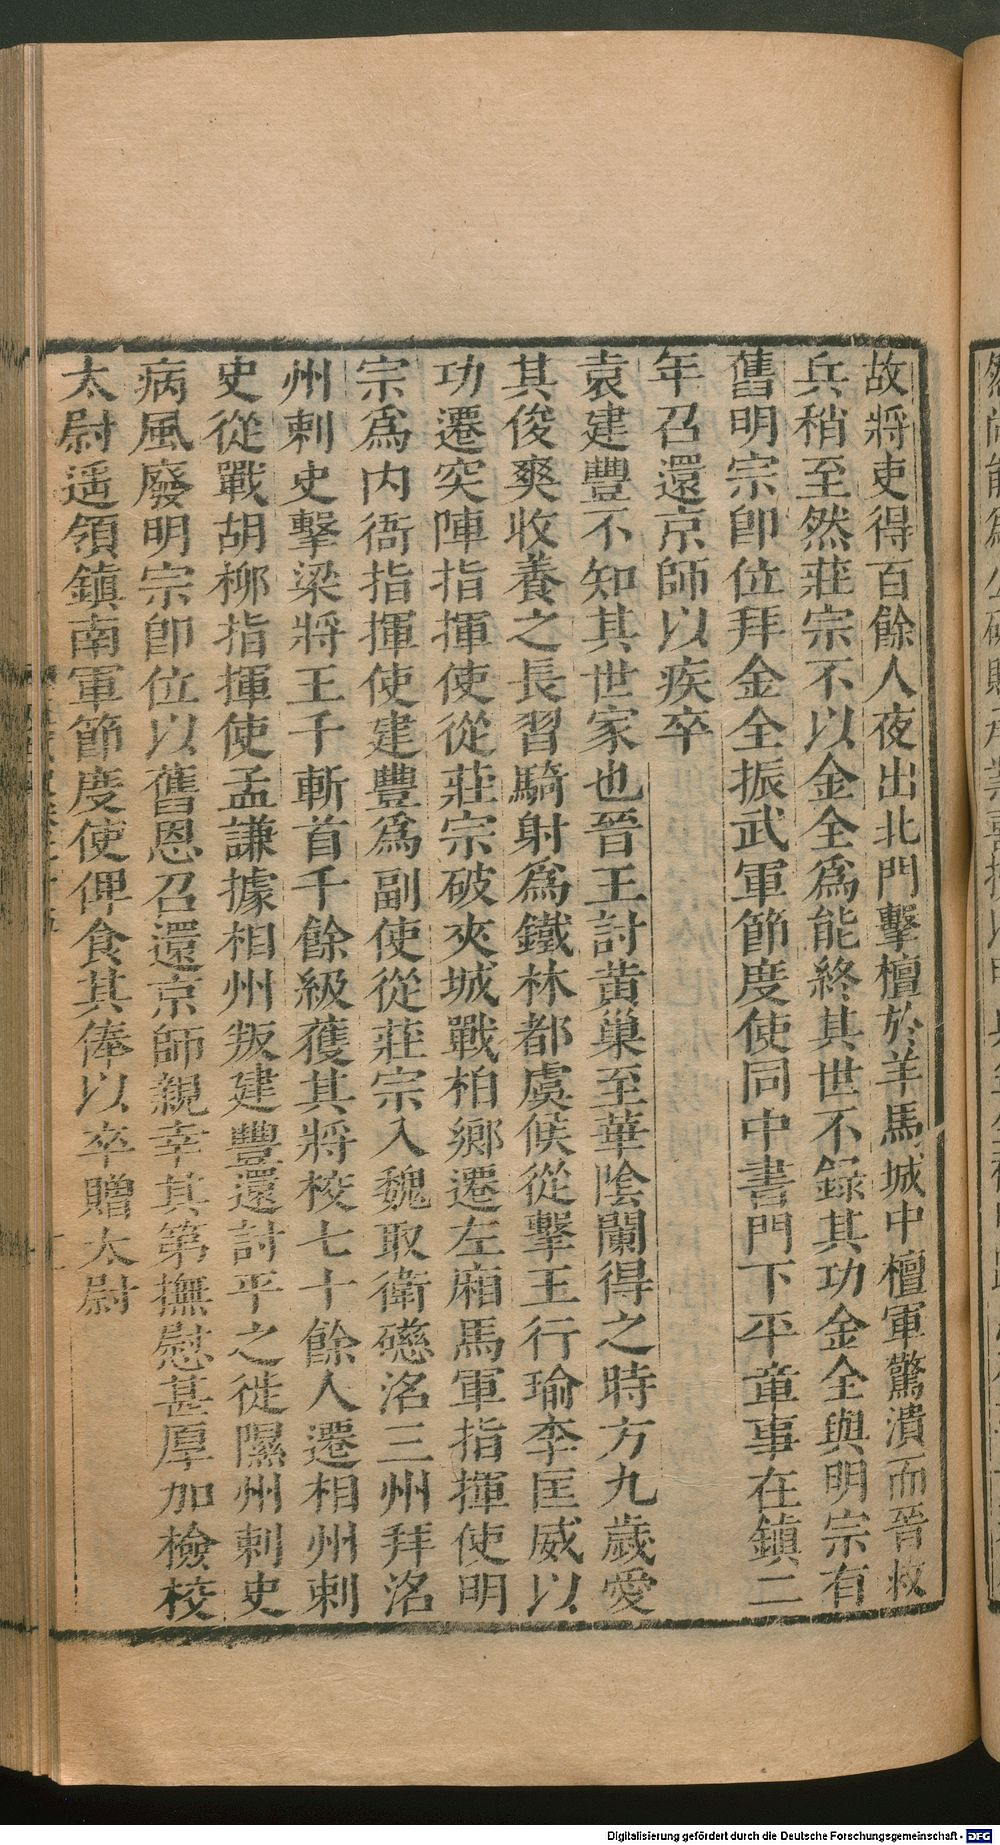 故將吏得百餘人夜出北門擊檀於羊馬城中檀軍驚潰而晉救
兵稍至然莊宗不以金全爲能終其世不録其功金全與明宗有
舊明宗卽位拜金全振武軍節度使同中書門下平章事在鎮二
年召還京師以疾卒
袁建豐不知其世家也晉王討黄巢至華陰闌得之時方九歲愛
其俊爽收養之長習騎射爲鐵林都虞候從擊王行瑜李匡威以
功遷突陣指揮使從莊宗破夾城戰柏鄉遷左廂馬軍指揮使明
宗爲内衙指揮使建豐爲副使從莊宗入魏取衛磁洺三州拜洺
州刺史擊梁將王千斬首千餘級獲其將校七十餘人遷相州刺
史從戰胡柳指揮使孟謙據相州叛建豐還討平之徙隰州刺史
病風廢明宗卽位以舊恩召還京師親幸其第撫慰甚厚加檢校
太尉遥領鎮南軍節度使俾食其俸以卒贈太尉
Digitalisierung gefördert durch die Deutsche Forschungsgemeinschaft - DFG